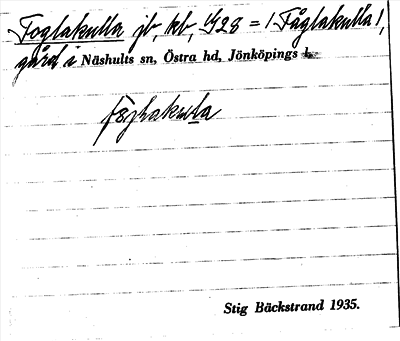 Foglakulla jb, kb, G28 = / Fåglakulla /,
gård i Näshults sn, Östra hd, Jönköpings l.
Stig Bäckstrand 1935.